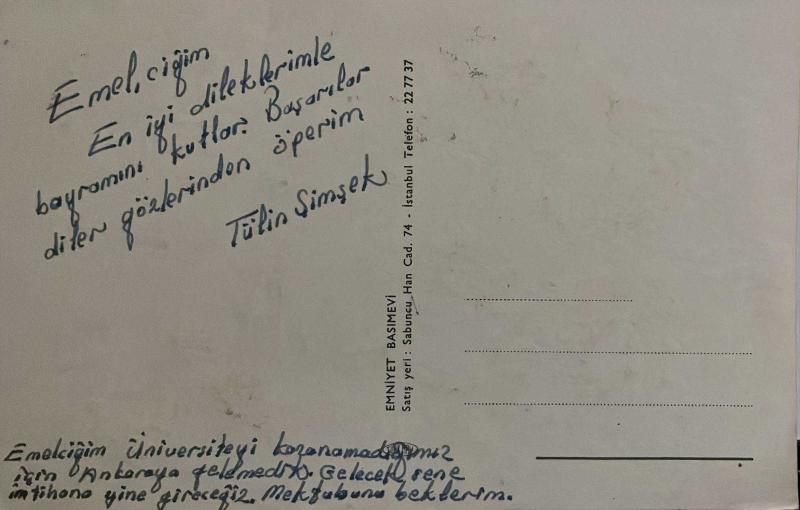 Emel,ciğim
En iyi dileklerimle
bayramını kutlar. Başarılar
diler gözlerinden öperim
Tülin Şimşek
EMNİYET BASIMEVİ
Satış yeri: Sabuncu Han Cad. 74 - İstanbul Telefon: 22 77 37
Emelciğim Üniversiteyi kazanamadığımız
için Ankaraya gelemedik. Gelecek sene
imtihana yine gireceğiz. Mektubunu beklerim.